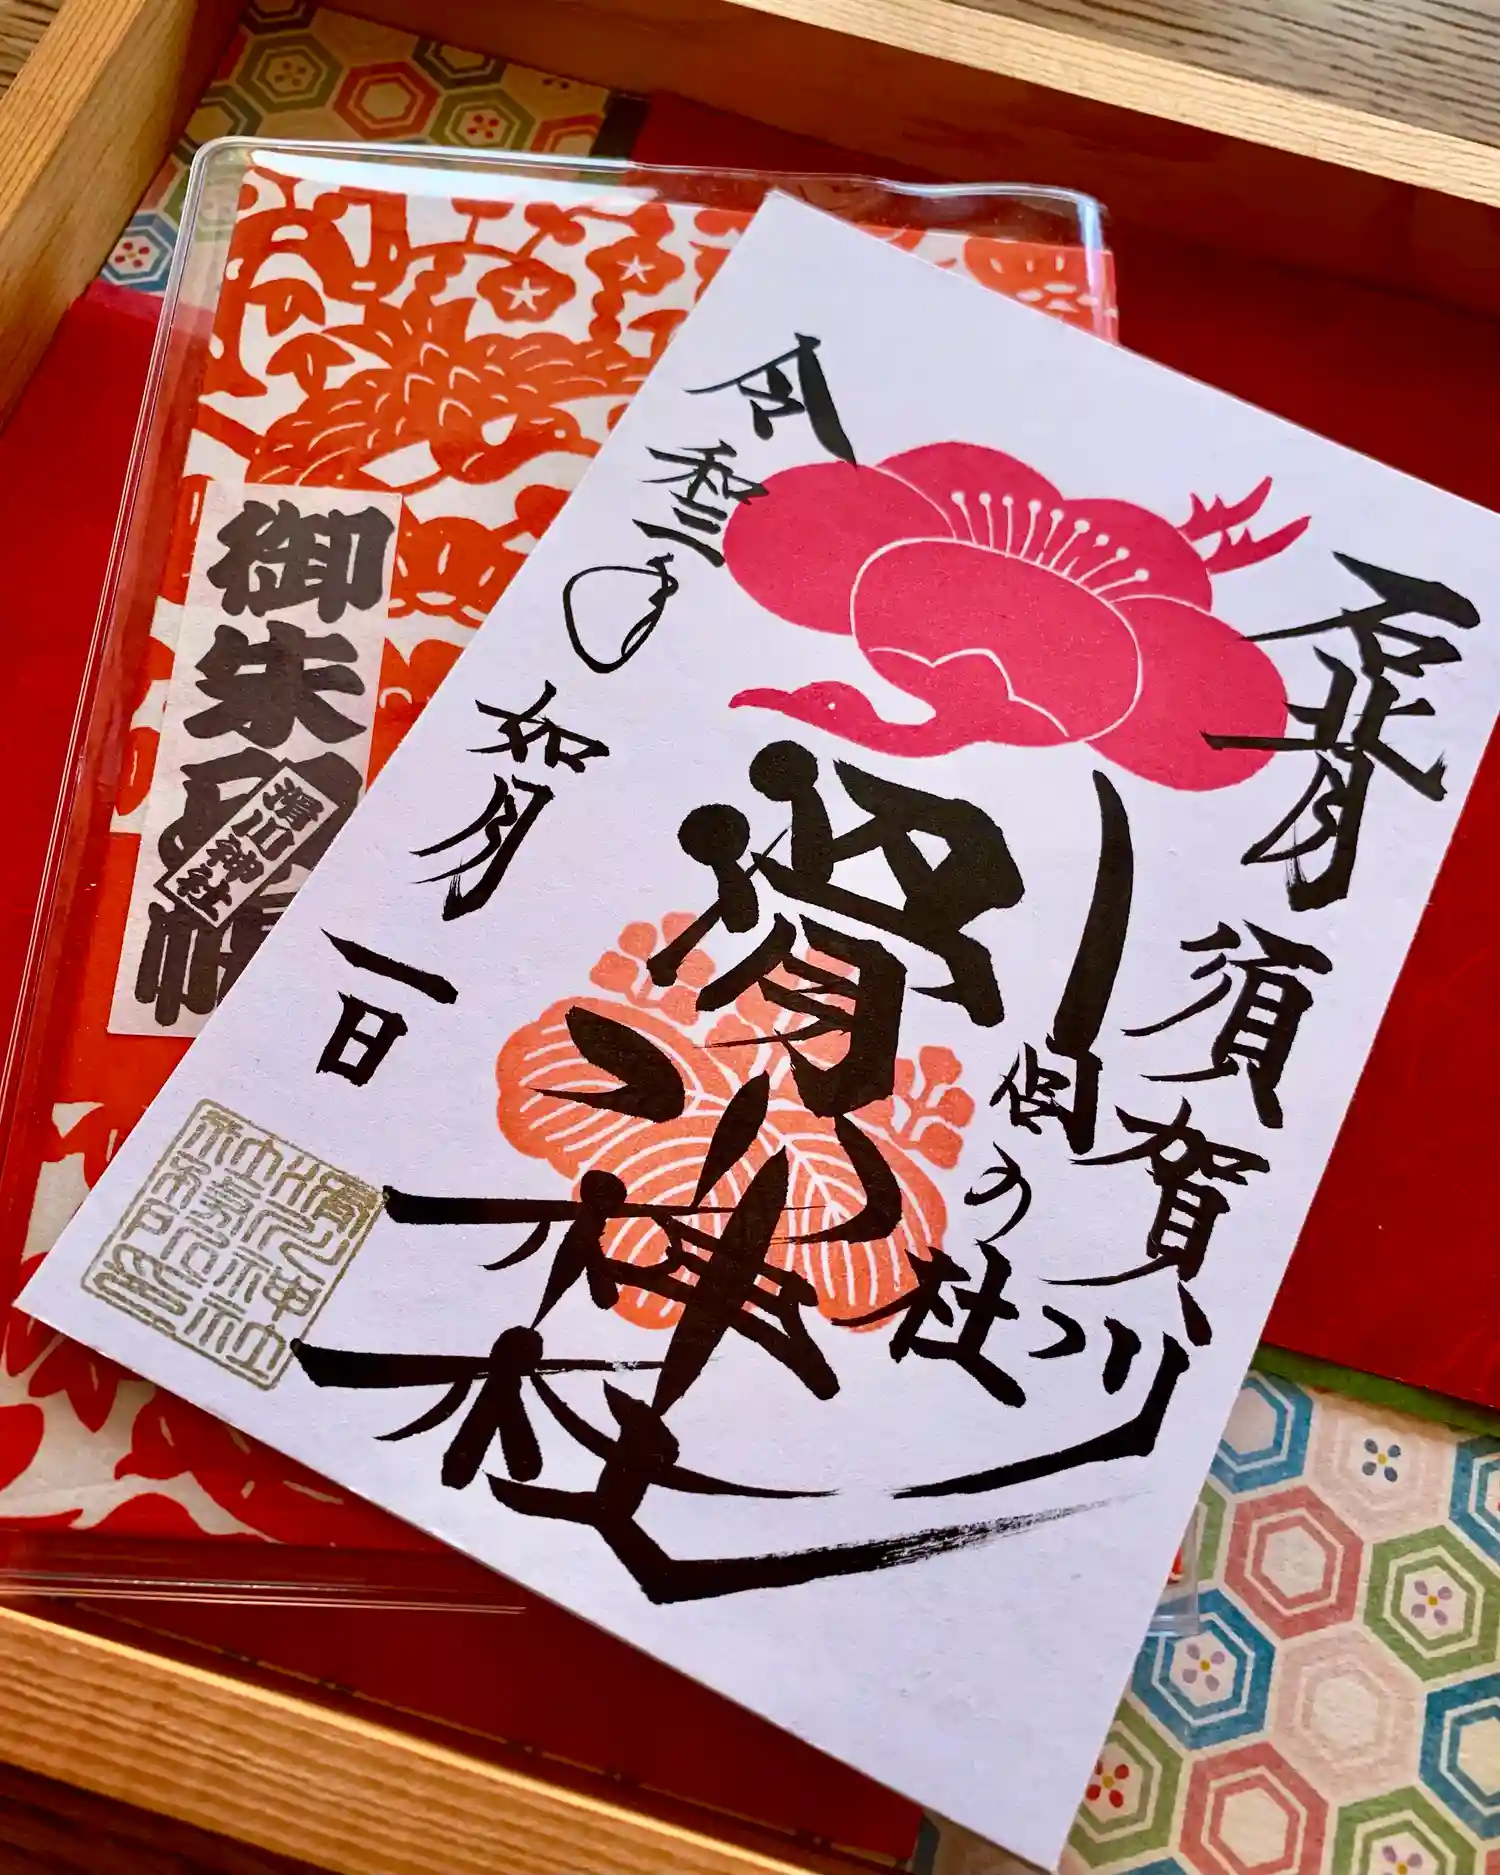 石背 須賀川
の社
滑川神社
令和三年
如月
一日
滑川神社
社務所印
御朱印帳
滑川神社